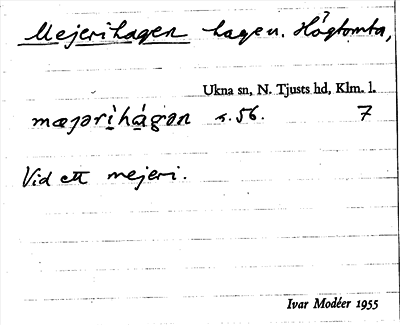 Mejerihagen hagen. Högtomta,
Ukna sn, N. Tjusts hd, Klm. l.
mæjərìhágən s. 56. 7
Vid ett mejeri.
Ivar Modéer 1955